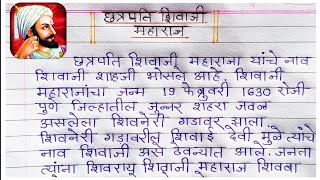 छत्रपति शिवाजी
महाराज
छत्रपति शिवाजी महाराजा यांचे नाव
शिवाजी शाहजी भोसले आहे. शिवाजी
महाराजांचा जन्म 19 फेब्रुवरी 1630 रोजी
पुणे जिल्हातील जुन्नर शहरा जवळ
असलेला शिवनेरी गडावर झाला.
शिवनेरी गडावरील शिवाई देवी मुळे त्यांचे
नाव शिवाजी असे ठेवण्यात आले. जनता
त्यांना शिवराय शिवाजी महाराज शिवबा